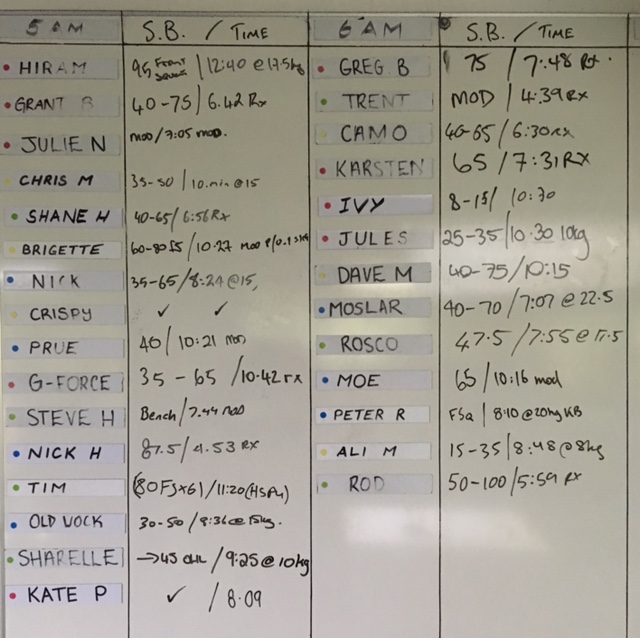 5 AM S.B. / TIME
HIRAM 95 Front Squat / 12:40 @ 17.5kg
GRANT B 40-75 / 6.42 Rx
JULIE N mod / 7:05 mod.
CHRIS M 35-50 / 10.min @ 15
SHANE H 40-65 / 6:56 Rx
BRIGETTE 60-80 / 10:27 mod
NICK 35-65 / 8:24 @ 15,
CRISPY ✓ ✓
PRUE 40 / 10:21 mod
G-FORCE 35 - 65 / 10.42 rx
STEVE H Bench / 7.44 mod
NICK H 87.5 / 4.53 RX
TIM (80 FS x6) / 11:20 (HSPU)
OLD VOCK 30-50 / 9:36 @ 15kg.
SHARELLE →45 / 9:25 @ 10kg
KATE P ✓ / 8.09
6 AM S.B. / TIME
GREG B 75 / 7:48 Rx.
TRENT MOD / 4:39 RX
CAMO 40-65 / 6:30 RX
KARSTEN 65 / 7:31 RX
IVY 8-15 / 10:30
JULES 25-35 / 10.30 10kg
DAVE M 40-75 / 10:15
MOSLAR 40-70 / 7:07 @ 22.5
ROSCO 47.5 / 7:55 @ 17.5
MOE 65 / 10:16 mod
PETER R FSQ / 8:10 @ 20kg KB
ALI M 15-35 / 8:48 @ 8kg
ROD 50-100 / 5:59 RX